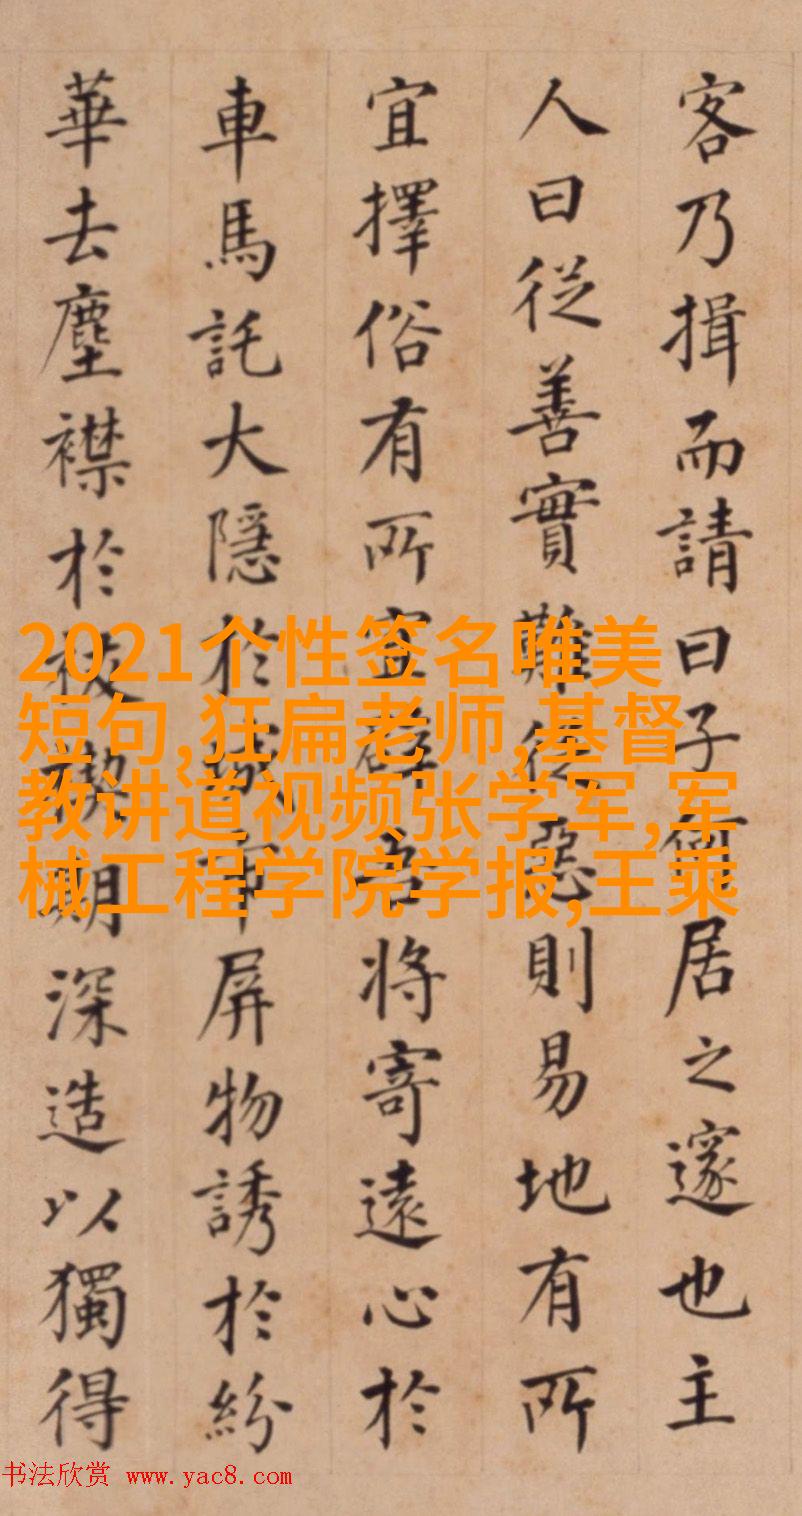 客乃揖而請曰子何居之邃也主
人曰從善實難從惡則易地有所
宜擇俗有所宜吾將寄遠心於
車馬託大隱於城市屏物誘於紛
華去塵襟於祓禊期深造以獨得
2021个性签名唯美
短句,狂扁老师,基督
教讲道视频张学军,军
械工程学院学报,王乘
书法欣赏 www.yac8.com